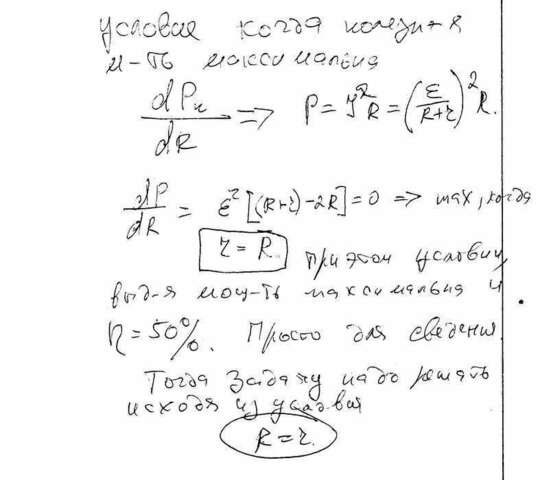 условие когда полезная
м-ть максимальная
dPп/dR => P = I²R = (ε/(R+r))² R.
dP/dR = ε² [(R+r) - 2R] = 0 => max, когда
r = R. При этом условии,
выд-я мощ-ть максимальна и
η = 50%. Просто для сведения.
Тогда задачу надо решать
исходя из условия
R = r.